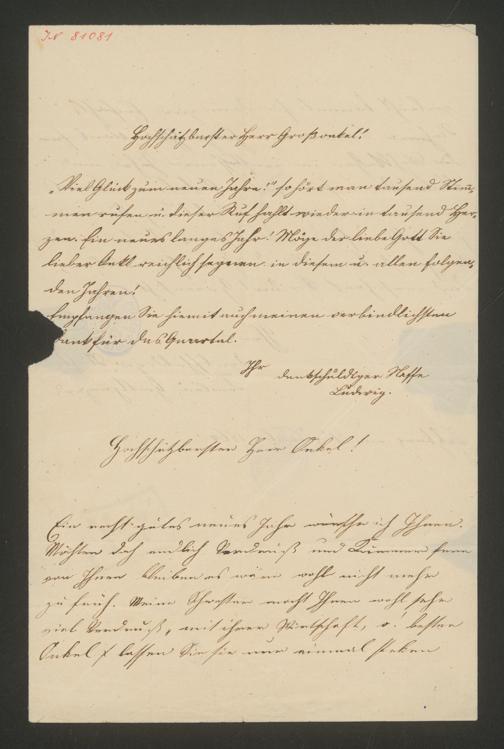 IN 81081
Hochschätzbarster Herr Großonkel!
„Viel Glück zum neuen Jahre!" so hört man tausend Stim-
men rufen u. dieser Ruf hallt wieder in tausend Her-
zen. Ein neues langes Jahr! Möge der liebe Gott Sie
lieber Onkl reichlich segnen in diesem u. allen folgen-
den Jahren!
Empfangen Sie hiemit auch meinen verbindlichsten
Dank für das Quartal.
Ihr dankschuldiger Naffe
Ludwig.
Hochschätzbarster Herr Onkel!
Ein recht gutes neues Jahr wünsche ich Ihnen.
Möchten doch endlich Verdruß und Kummer fern
von Ihnen bleiben es wäre wohl nicht mehr
zu früh. Meine Schwester macht Ihnen wohl sehr
viel Verdruß, mit ihrer Wirtschaft, o. bester
Onkel lassen Sie sie nur einmal stehen